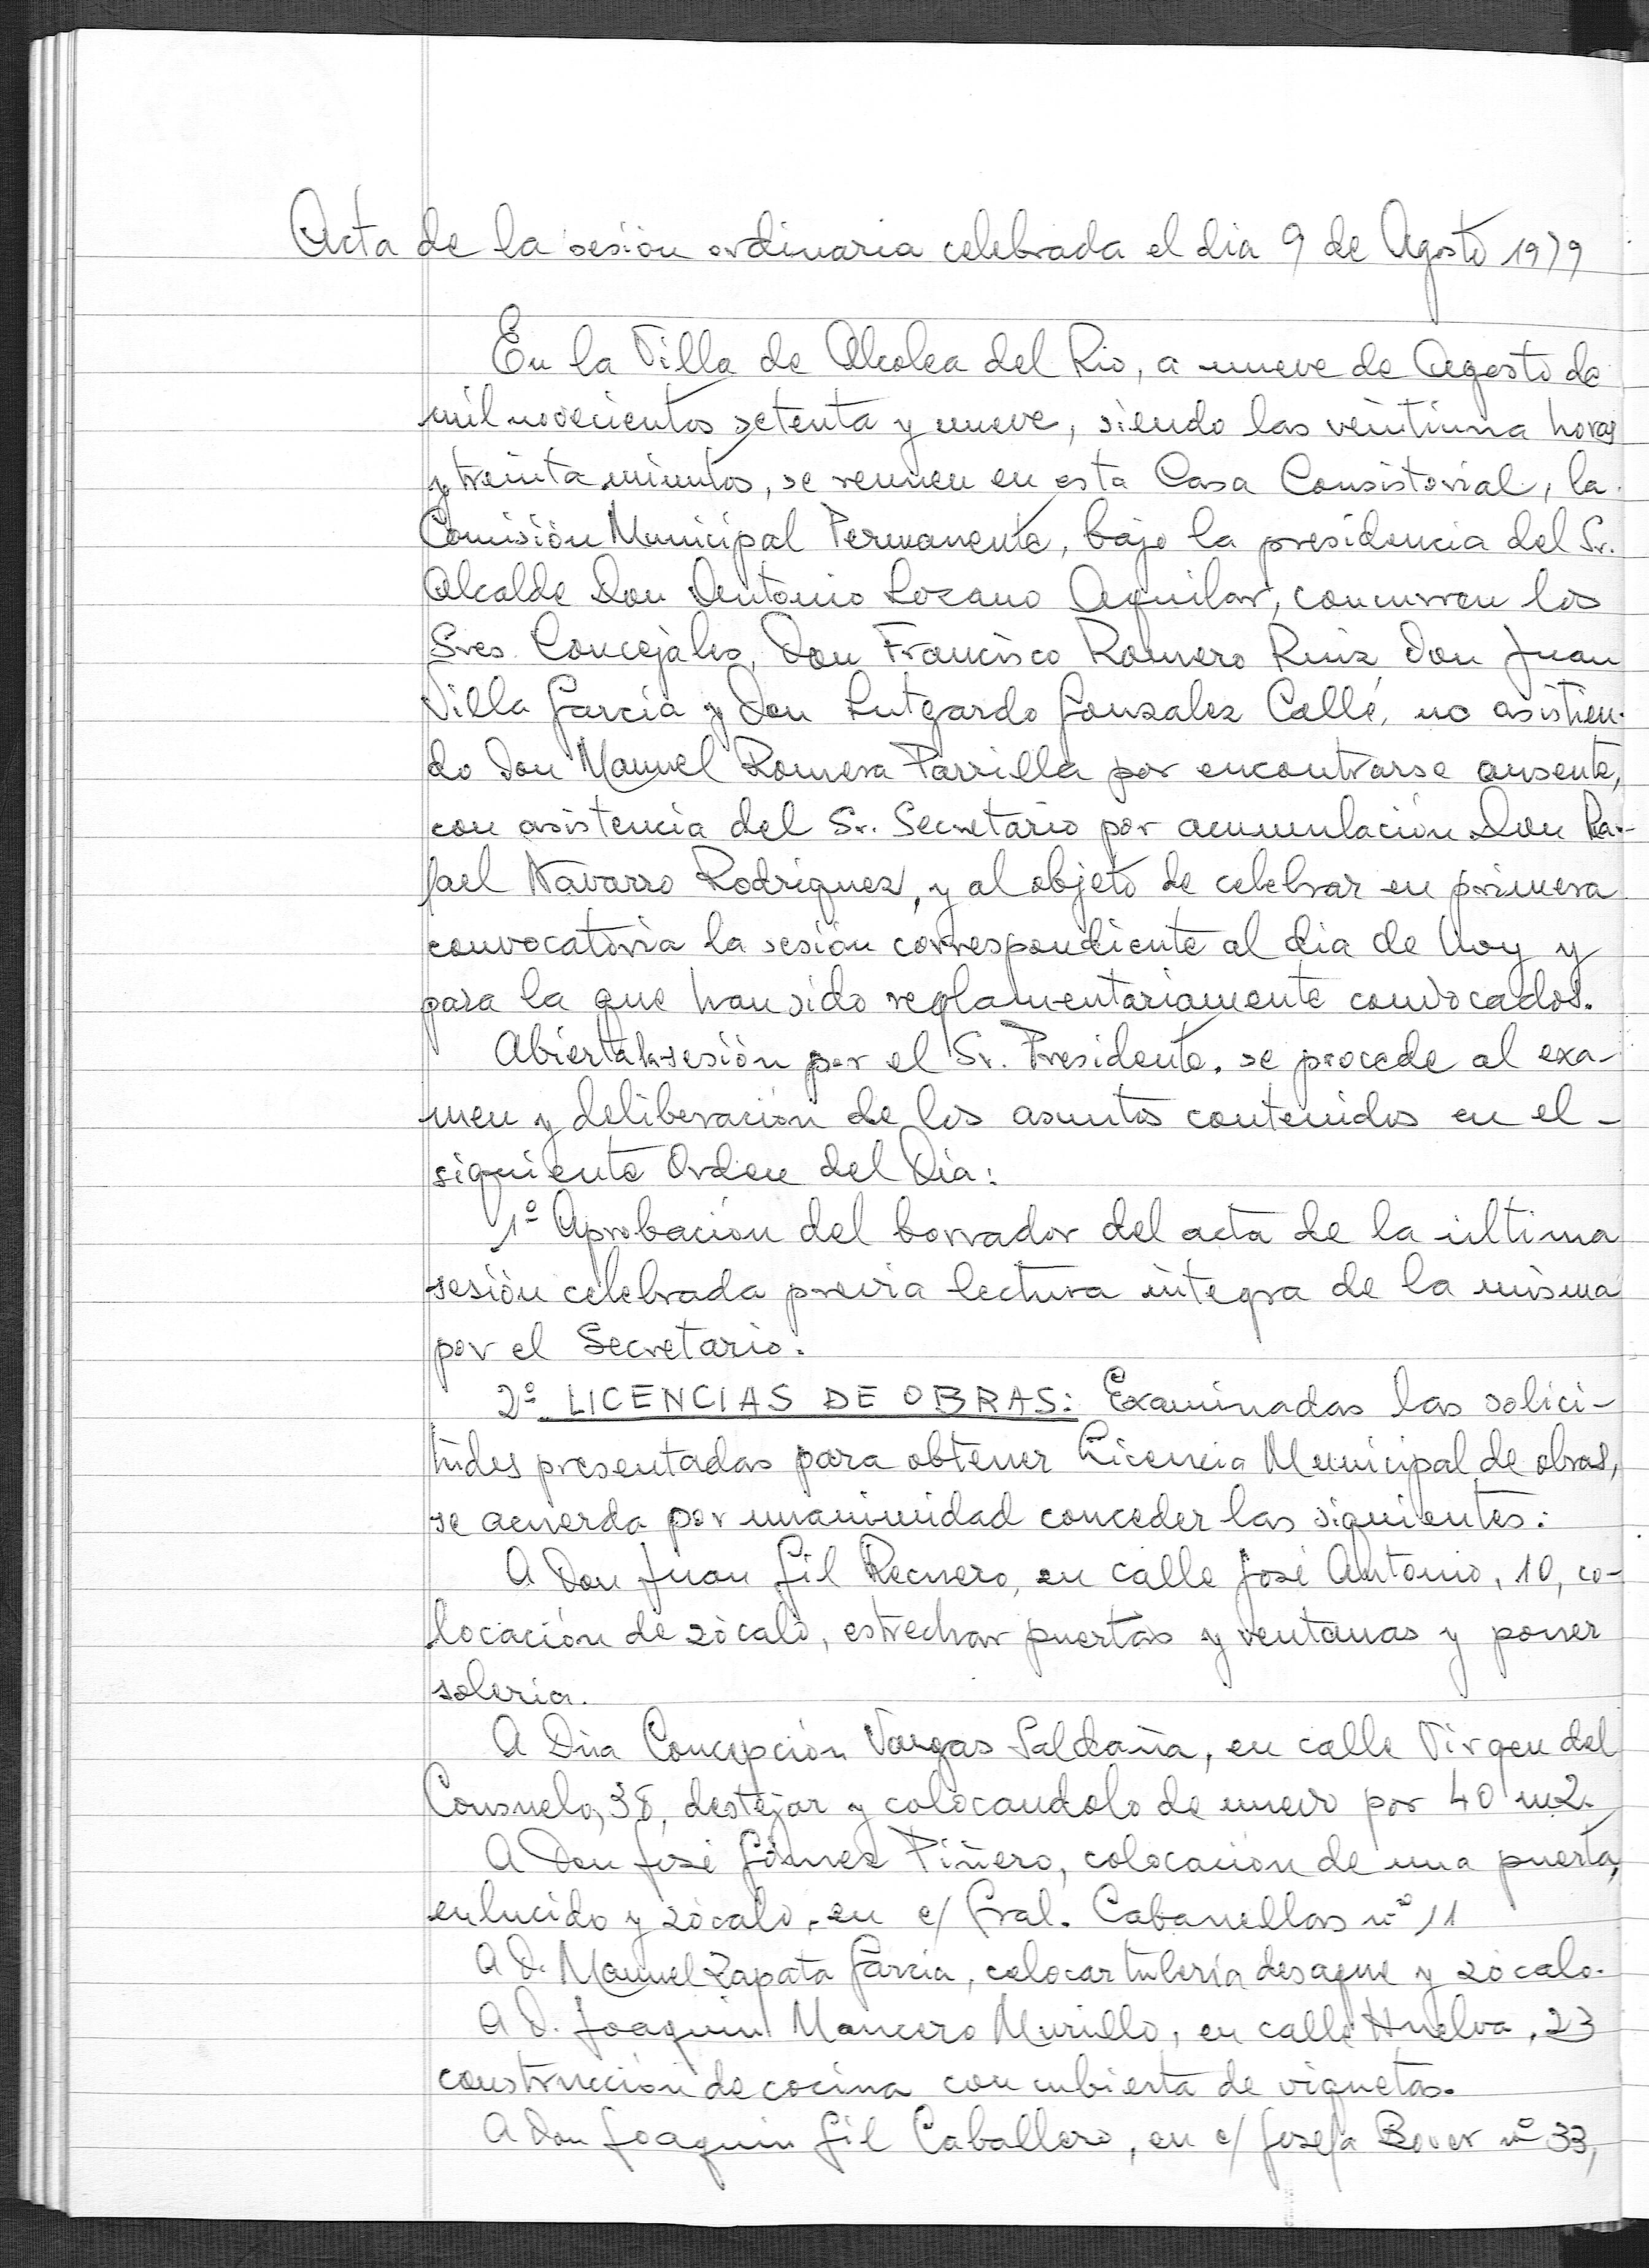 Acta de la sesión ordinaria celebrada el dia 9 de Agosto 1979
En la Villa de Alcolea del Rio, a nueve de Agosto de
mil novecientos setenta y nueve, siendo las veintiuna horas
y treinta minutos, se reunen en esta Casa Consistorial, la
Comisión Municipal Permanente, bajo la presidencia del Sr.
Alcalde Don Antonio Lozano Aguilar, concurren los
Sres. Concejales, Don Francisco Romero Ruiz Don Juan
Villa García y Don Lutgardo Gonzalez Calle, no asistien-
do Don Manuel Romera Parrilla por encontrarse ausente,
con asistencia del Sr. Secretario por acumulación Don Ra-
fael Navarro Rodriguez, y al objeto de celebrar en primera
convocatoria la sesión correspondiente al dia de hoy y
para la que han sido reglamentariamente convocados.
Abierta la sesión por el Sr. Presidente, se procede al exa-
men y deliberación de los asuntos contenidos en el -
siguiente Orden del Dia:
1º Aprobación del borrador del acta de la ultima
sesión celebrada previa lectura integra de la misma
por el Secretario.
2º LICENCIAS DE OBRAS: Examinadas las solici-
tudes presentadas para obtener Licencia Municipal de obras,
se acuerda por unanimidad conceder las siguientes:
A Don Juan Gil Recuero, en calle José Antonio, 10, co-
locación de zócalo, estrechar puertas y ventanas y poner
soleria.
A Dña Concepción Vargas Saldaña, en calle Virgen del
Consuelo, 38, destejar y colocandolo de nuevo por 40 m2.
A Don José Gómez Piñero, colocación de una puerta,
enlucido y zócalo, en c/ Gral. Cabanellas nº 11
A D. Manuel Zapata García, colocar tubería desague y zócalo.
A D. Joaquin Mancera Murillo, en calle Huelva, 23
construcción de cocina con cubierta de viguetas.
A Don Joaquin Gil Caballero, en c/ Josefa Bover nº 33,